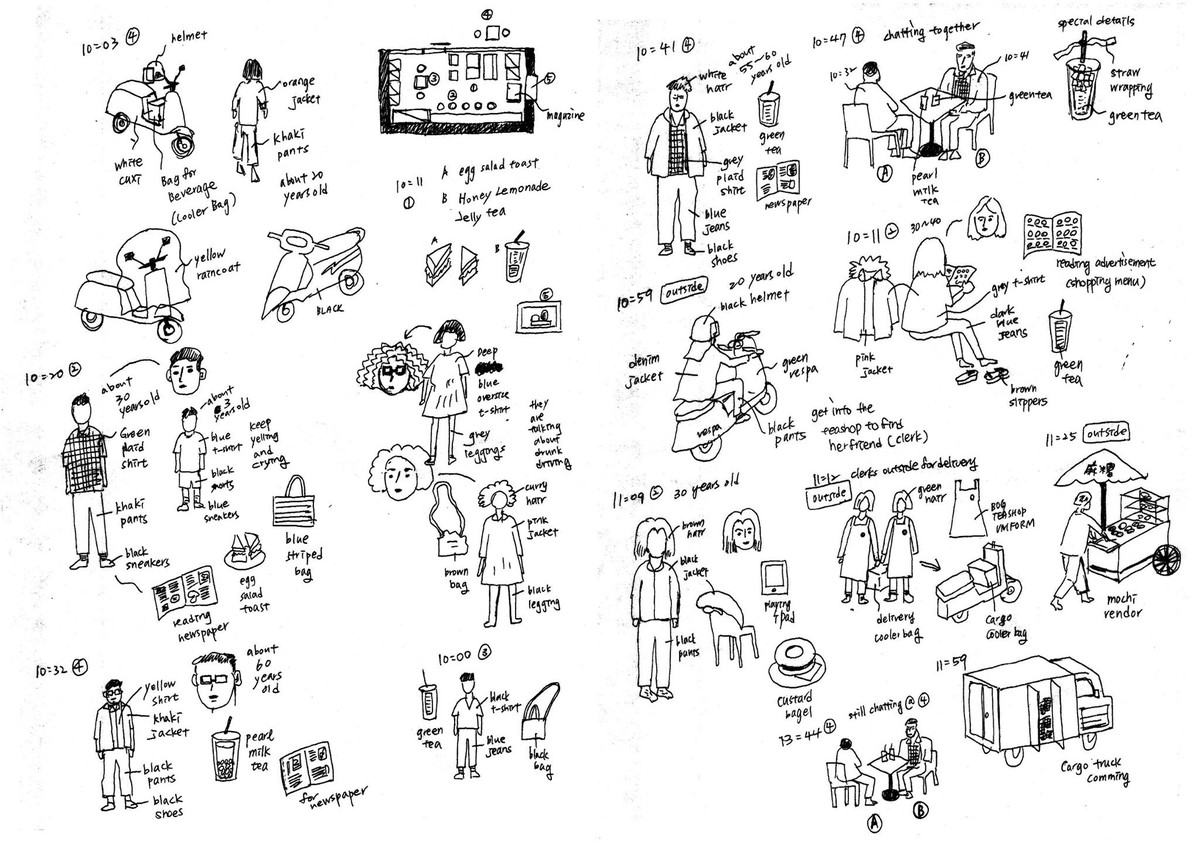 10=03 ④
helmet
orange
jacket
khaki
pants
about 20
years old
white
cuxi
Bag for
Beverage
(cooler Bag)
④
③
①
②
⑤
magazine
10=11
①
A egg salad toast
B Honey Lemonade
Jelly tea
A
B
yellow
raincoat
BLACK
⑤
10=20 ②
about
30
years old
Green
plaid
shirt
khaki
pants
black
sneakers
about
3
years old
blue
t-shirt
keep
yelling
and
crying
black
shorts
blue
sneakers
blue
striped
bag
egg
salad
toast
reading
newspaper
Deep
blue
oversize
t-shirt
grey
leggings
they
are
talking
about
drunk
driving
curry
hair
pink
jacket
brown
bag
black
legging
10=32 ④
yellow
shirt
khaki
jacket
black
pants
black
shoes
about
60
years
old
pearl
milk
tea
for newspaper
10=00 ③
green
tea
black
t-shirt
blue
jeans
black
bag
10=41 ④
white
hair
about
55~60
years old
black
jacket
green
tea
grey
plaid
shirt
newspaper
blue
jeans
black
shoes
10=47 ④ chatting together
10=32
10=41
greentea
pearl
milk
tea
A
B
special details
straw
wrapping
green tea
10=11 ②
30~40
reading advertisement
(shopping menu)
grey t-shirt
dark
blue
jeans
green
tea
pink
jacket
brown
slippers
10=59 outside
20 years old
black helmet
denim
jacket
green
vespa
vespa
black
pants
get into the
teashop to find
her friend (clerk)
11=09 ②
30 years old
brown
hair
black
jacket
black
pants
playing
ipad
custard
bagel
11=12 clerks outside for delivery
outside
green
hair
BOG
TEASHOP
UNIFORM
delivery
cooler bag
cargo
cooler bag
11=25 outside
麻糬
mochi
vendor
still chatting @ ④
13=44 ④
A
B
11=59
Cargo truck
comming